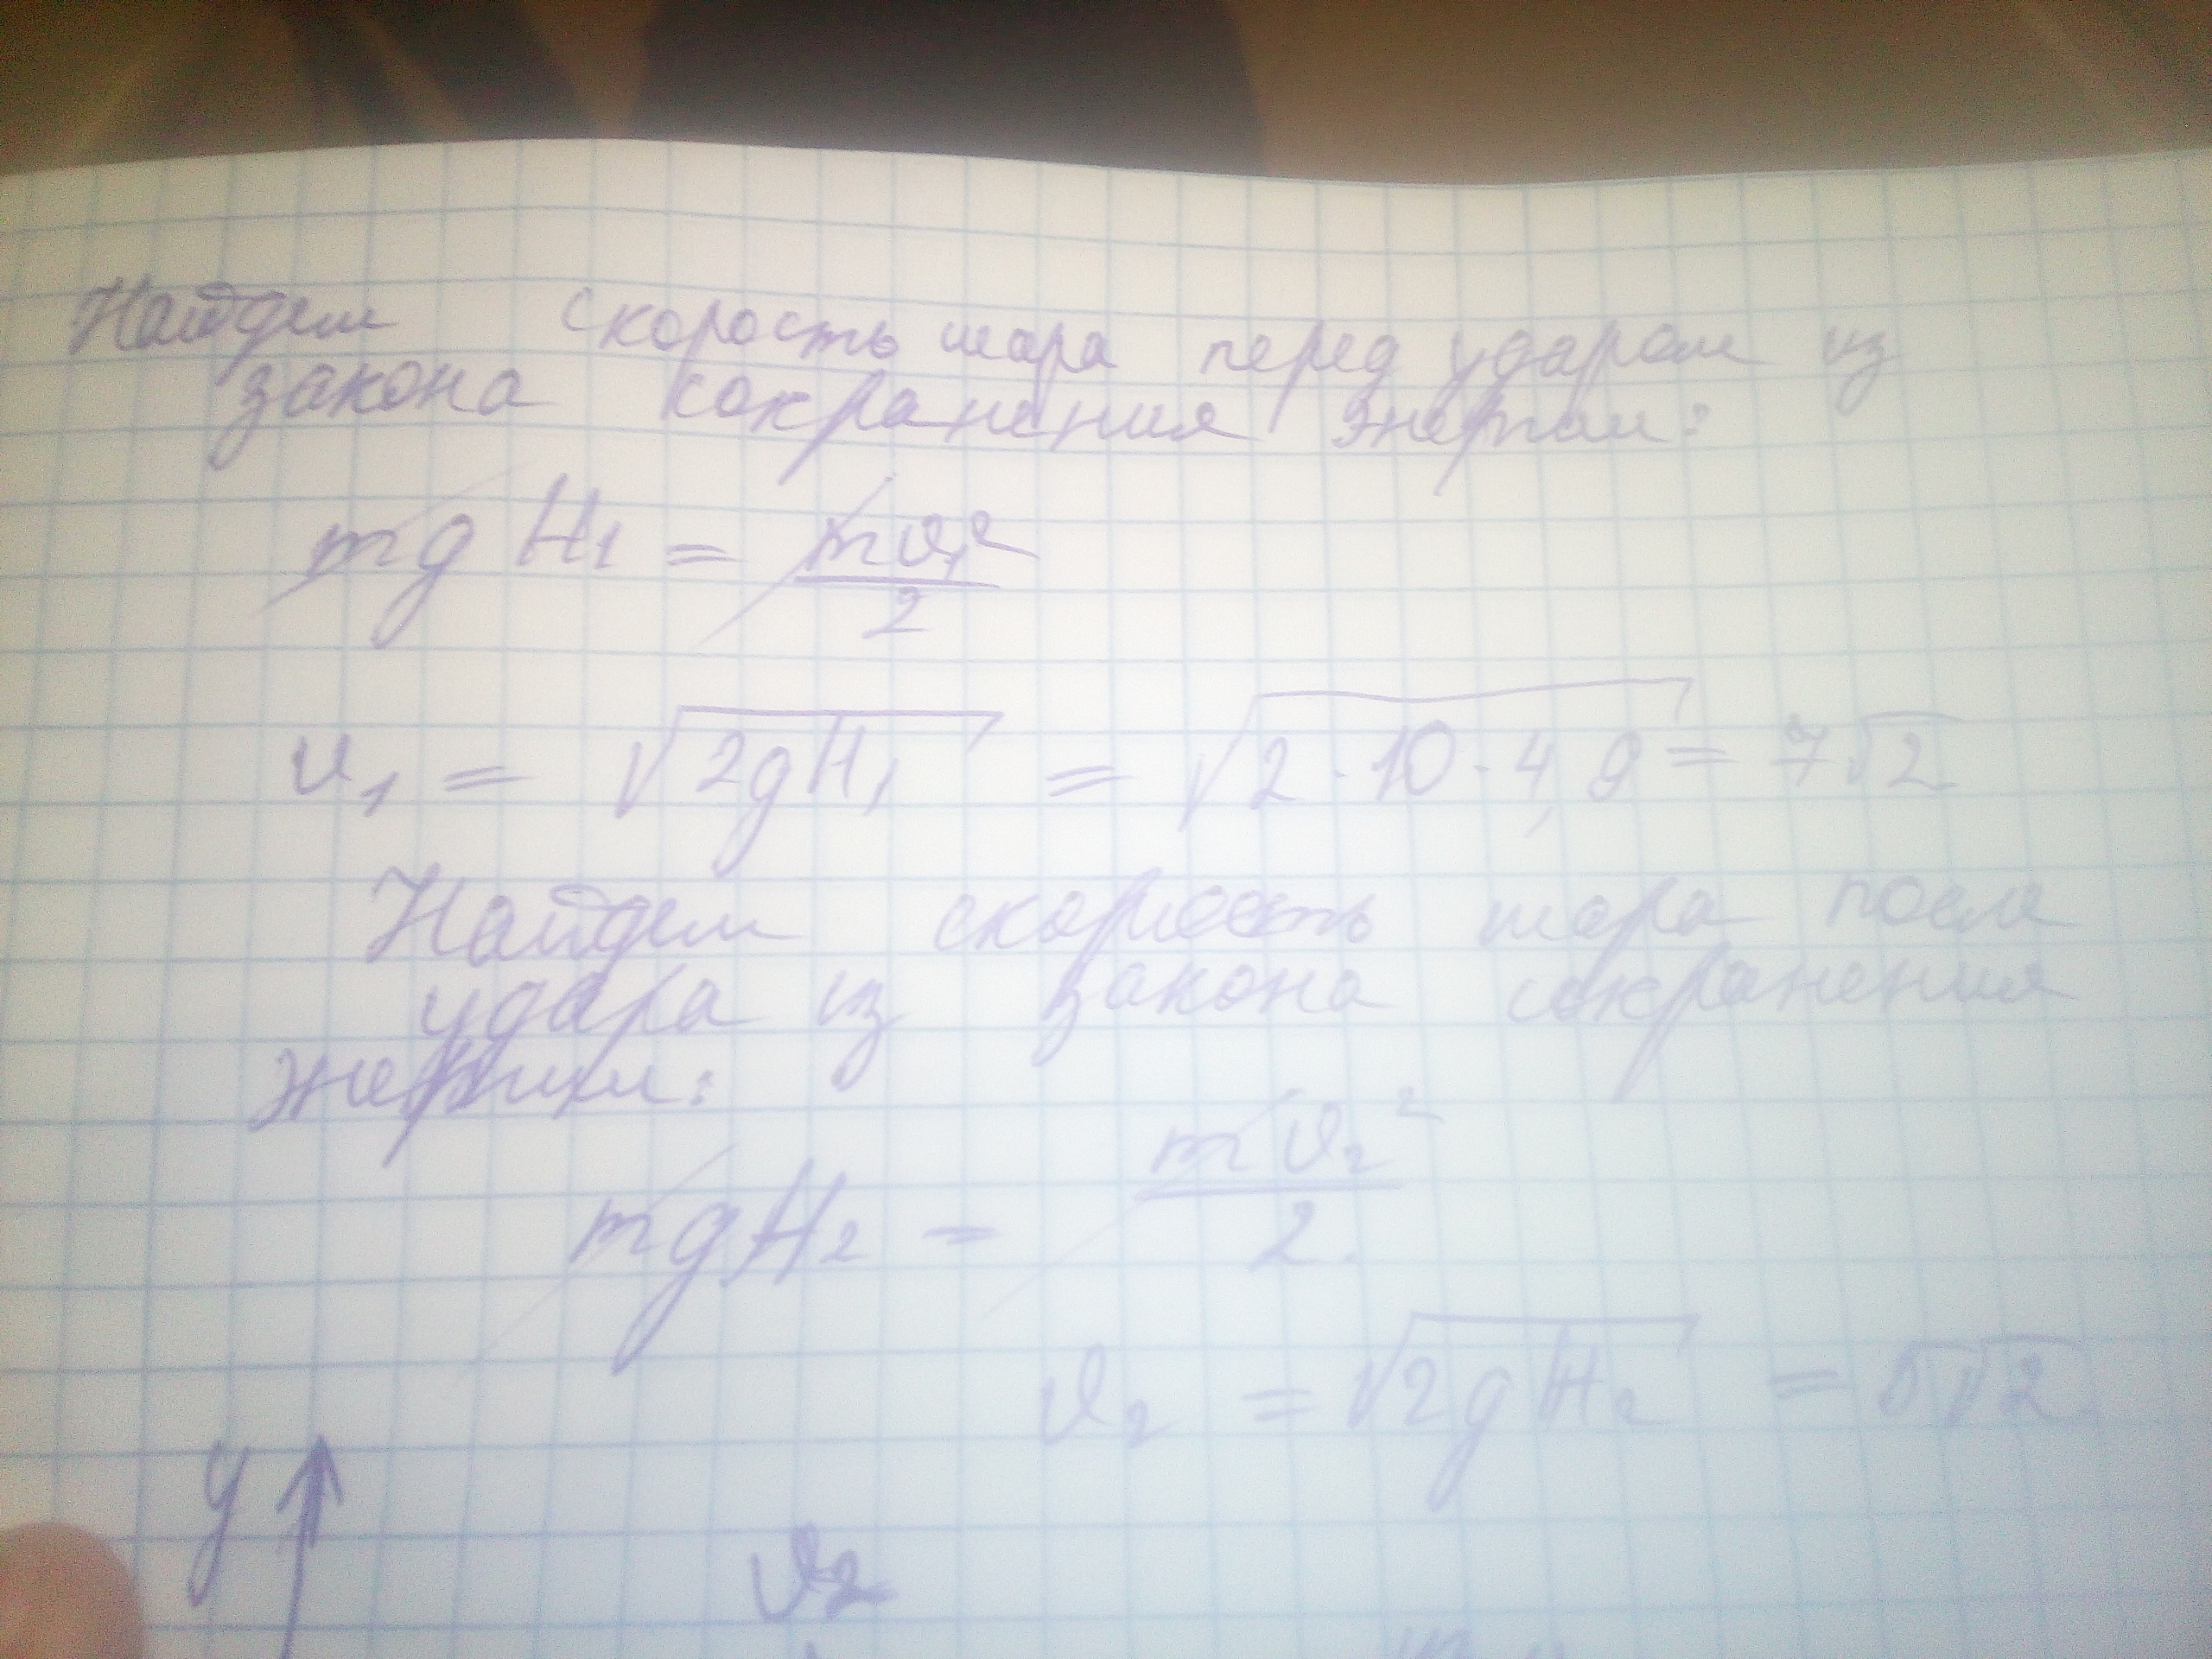 Найдем скорость шара перед ударом из
закона сохранения энергии:
mgH₁ = mυ₁²/2
υ₁ = √(2gH₁) = √(2·10·4,9) = 7√2
Найдем скорость шара после
удара из закона сохранения
энергии:
mgH₂ = mυ₂²/2
υ₂ = √(2gH₂) = 5√2
y
υ₂